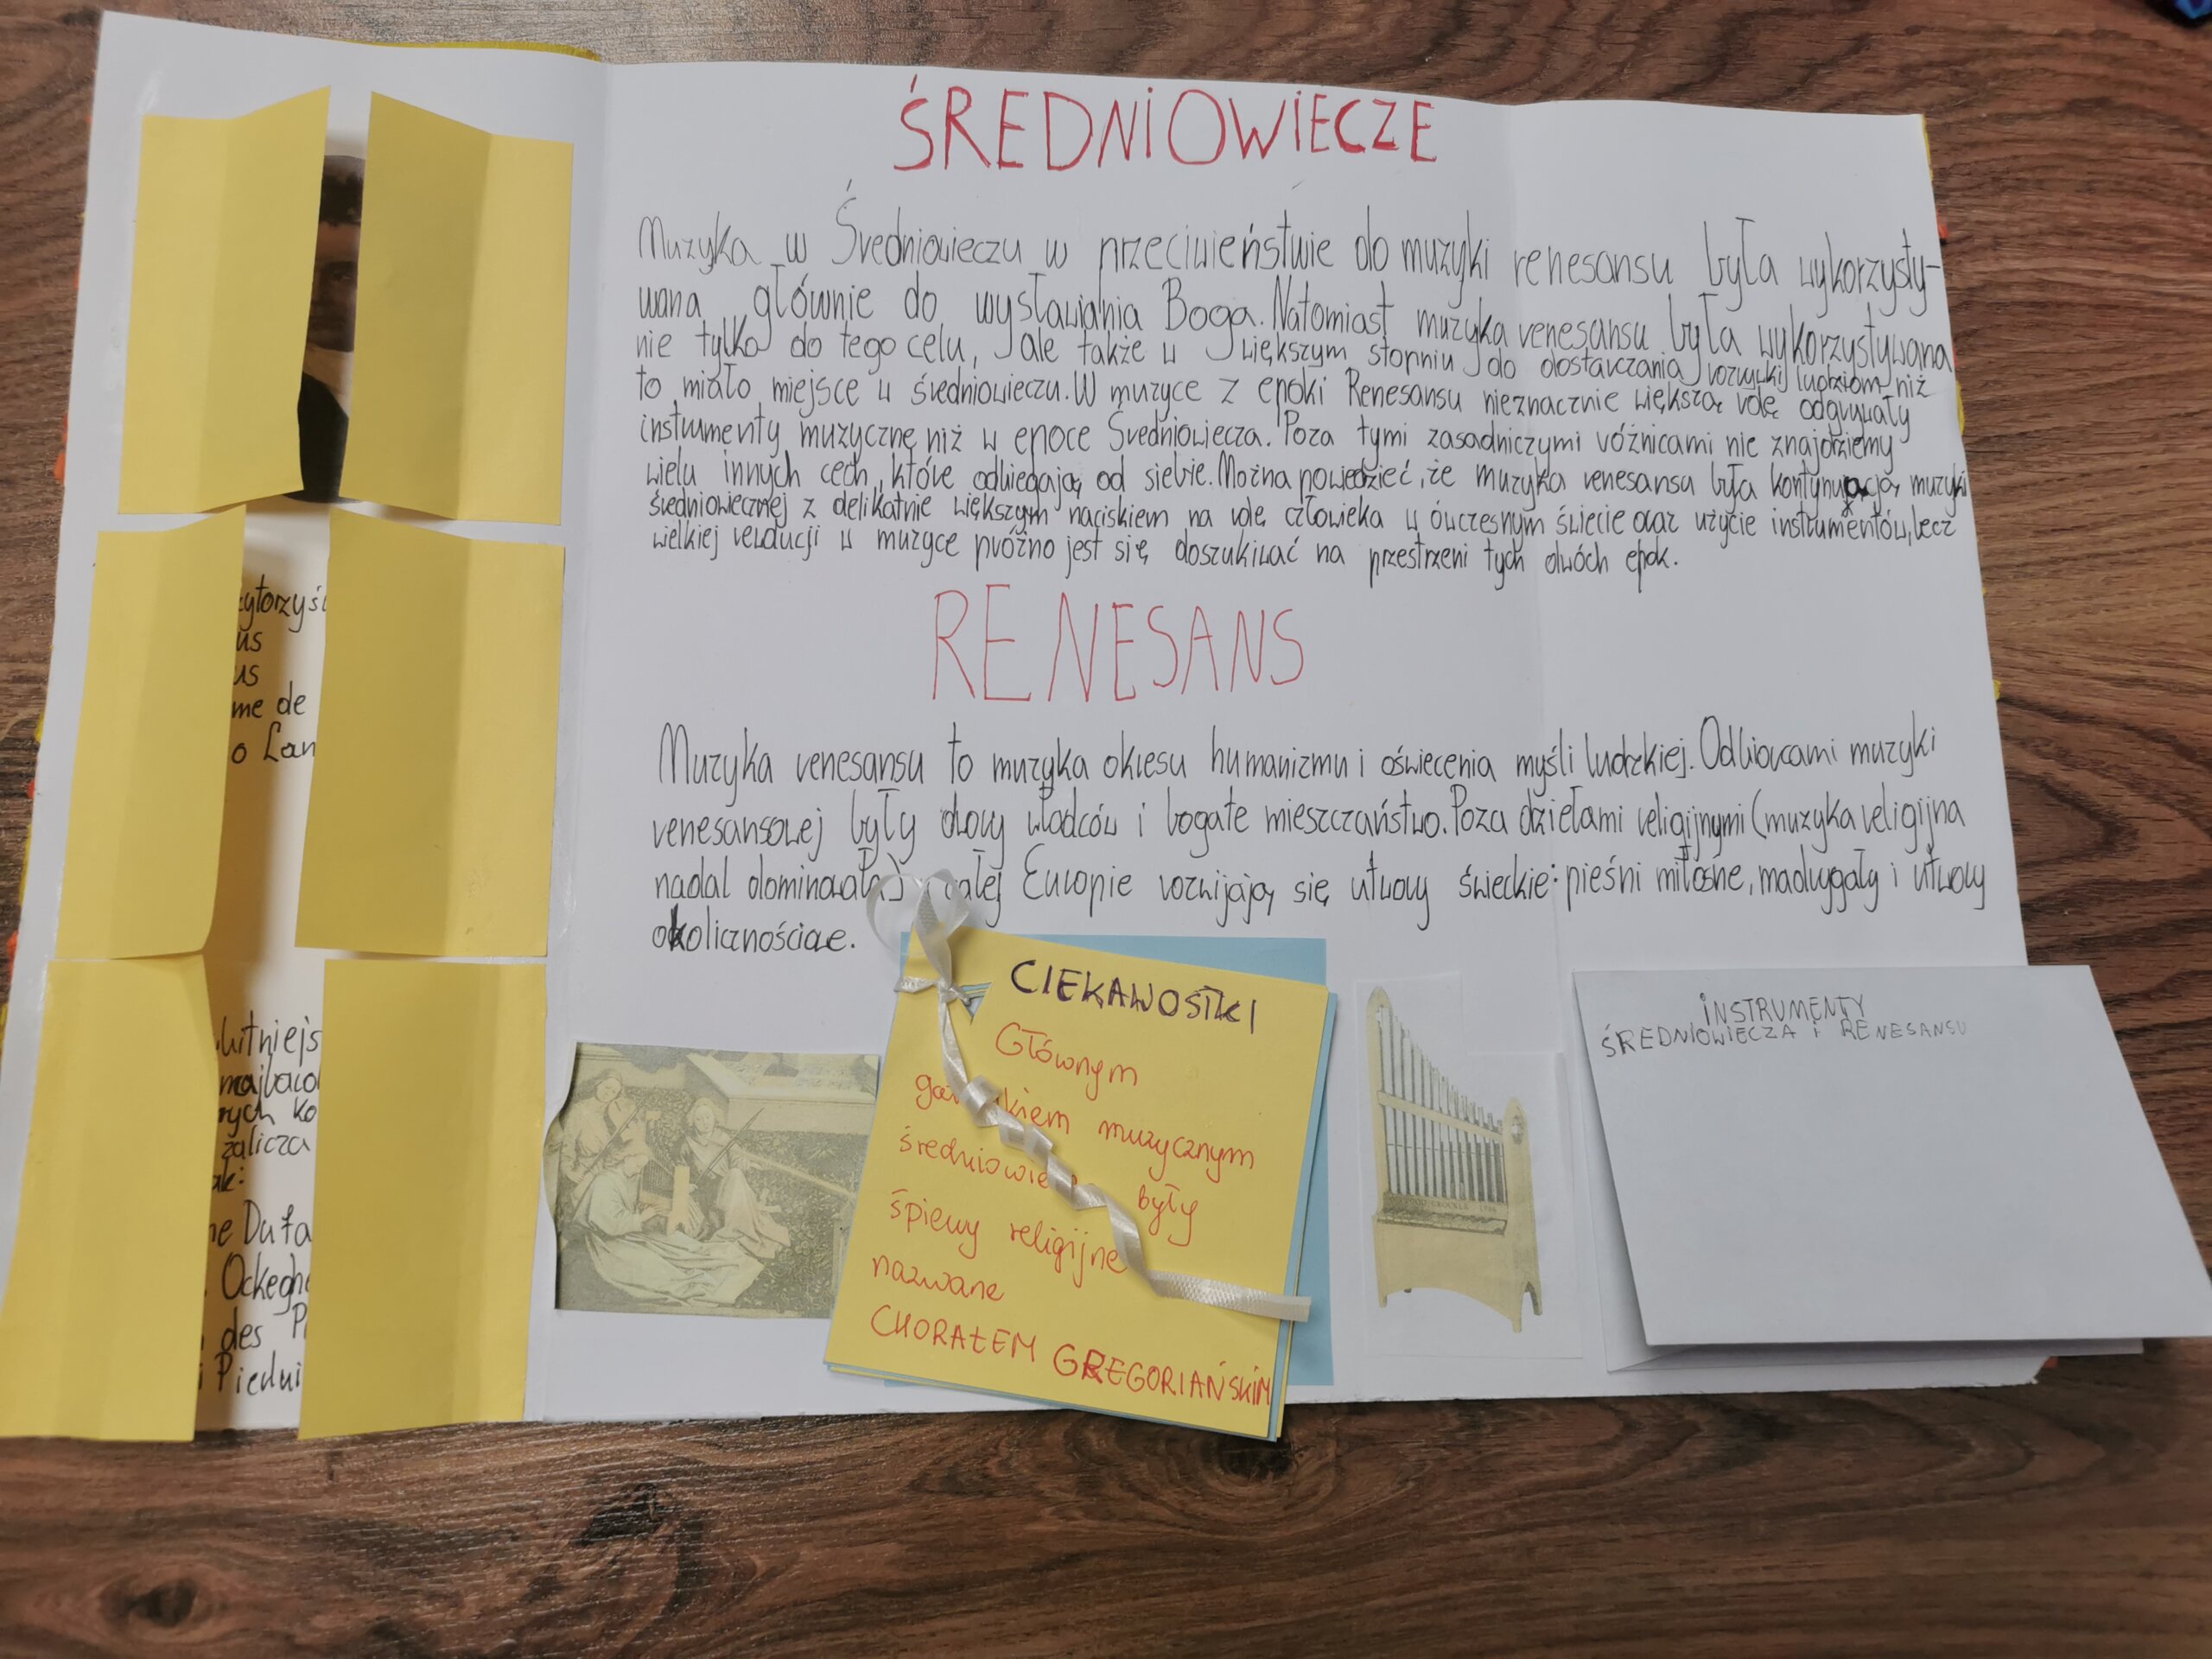 ŚREDNIOWIECZE
Muzyka w Średniowieczu w przeciwieństwie do muzyki renesansu była wykorzysty-
wana głównie do wysławiania Boga. Natomiast muzyka renesansu była wykorzystywana
nie tylko do tego celu, ale także w większym stopniu do dostarczania rozrywki ludziom niż
to miało miejsce w średniowieczu. W muzyce z epoki Renesansu nieznacznie większą rolę odgrywały
instrumenty muzyczne niż w epoce Średniowiecza. Poza tymi zasadniczymi różnicami nie znajdziemy
wielu innych cech, które odbiegają od siebie. Można powiedzieć, że muzyka renesansu była kontynuacją muzyki
średniowiecznej z delikatnie większym naciskiem na rolę człowieka w ówczesnym świecie oraz użycie instrumentów, lecz
wielkiej rewolucji w muzyce próżno jest się doszukiwać na przestrzeni tych dwóch epok.
RENESANS
Muzyka renesansu to muzyka okresu humanizmu i oświecenia myśli ludzkiej. Odbiorcami muzyki
renesansowej były dwory władców i bogate mieszczaństwo. Poza dziełami religijnymi (muzyka religijna
nadal dominowała) całej Europie rozwijają się utwory świeckie: pieśni miłosne, madrygały i utwory
okolicznościowe.
CIEKAWOSTKI
Głównym
kiem muzycznym
średniowie były
śpiewy religijne
nazwane
CHORAŁEM GREGORIAŃSKIM
INSTRUMENTY
ŚREDNIOWIECZA I RENESANSU
us
us
me de
o Lan
zalicza
ne Dufa
Ockeghe
des P